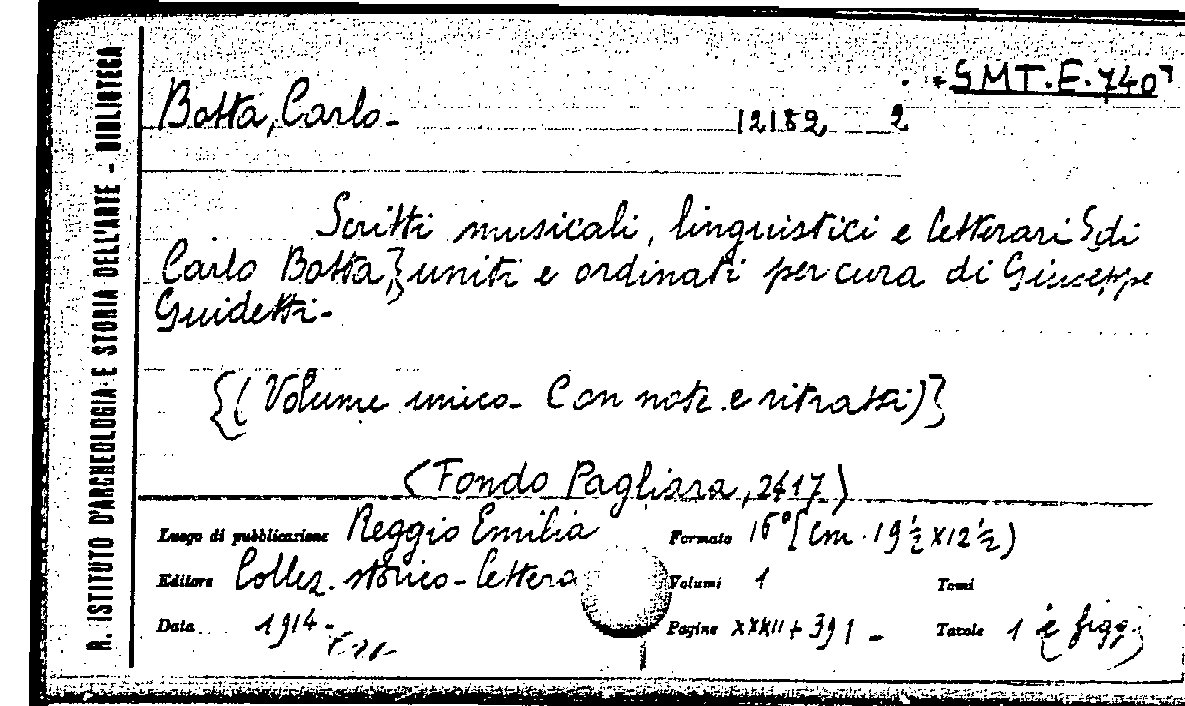 R. ISTITUTO D'ARCHEOLOGIA E STORIA DELL'ARTE - BIBLIOTECA
SMT.E.740
Botta, Carlo- 12182 2
Scritti musicali, linguistici e letterari {di
Carlo Botta,} uniti e ordinati per cura di Giuseppe
Guidetti-
{(Volume unico- Con note e ritratti)}
(Fondo Pagliara, 2417)
Luogo di pubblicazione Reggio Emilia Formato 16° [cm. 19 ½ x 12 ½)
Editore Collez. storico-lettera Volumi 1 Tomi
Data 1914- Pagine XXXII + 391 - Tavole 1 e figg.